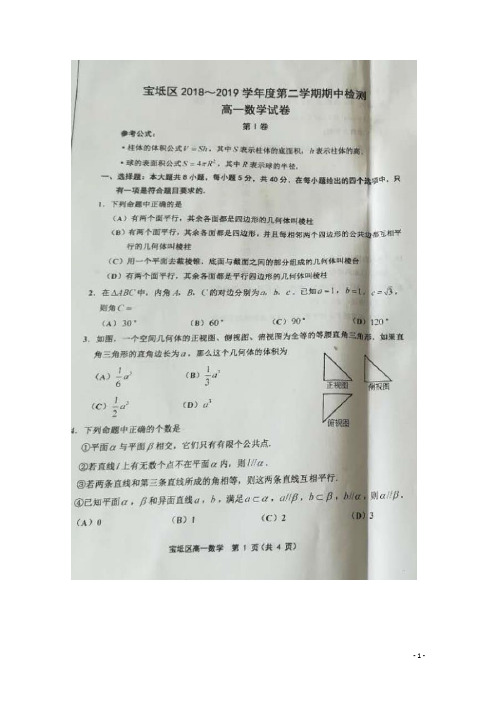 宝坻区 2018～2019 学年度第二学期期中检测
高一数学试卷
第Ⅰ卷
参考公式:
·柱体的体积公式V = Sh，其中S表示柱体的底面积，h表示柱体的高.
·球的表面积公式S = 4πR²，其中R表示球的半径.
一、选择题：本大题共8小题，每小题5分，共40分. 在每小题给出的四个选项中，只
有一项是符合题目要求的.
1. 下列命题中正确的是
(A) 有两个面平行，其余各面都是四边形的几何体叫棱柱
(B) 有两个面平行，其余各面都是四边形，并且每相邻两个四边形的公共边都互相平
行的几何体叫棱柱
(C) 用一个平面去截棱锥，底面与截面之间的部分组成的几何体叫棱台
(D) 有两个面平行，其余各面都是平行四边形的几何体叫棱柱
2. 在△ABC中，内角A，B，C的对边分别为a，b，c，已知a=1，b=1，c=√3，
则角C=
(A) 30° (B) 60° (C) 90° (D) 120°
3. 如图，一个空间几何体的正视图、侧视图、俯视图为全等的等腰直角三角形，如果直
角三角形的直角边长为a，那么这个几何体的体积为
(A) 1/6 a³ (B) 1/3 a³
正视图 侧视图
(C) 1/2 a³ (D) a³
俯视图
4. 下列命题中正确的个数是
①平面α与平面β相交，它们只有有限个公共点.
②若直线l上有无数个点不在平面α内，则l//α.
③若两条直线和第三条直线所成的角相等，则这两条直线互相平行.
④已知平面α，β和异面直线a，b，满足a⊂α，a//β，b⊂β，b//α，则α//β.
(A) 0 (B) 1 (C) 2 (D) 3
宝坻区高一数学 第 1 页(共 4 页)
- 1 -